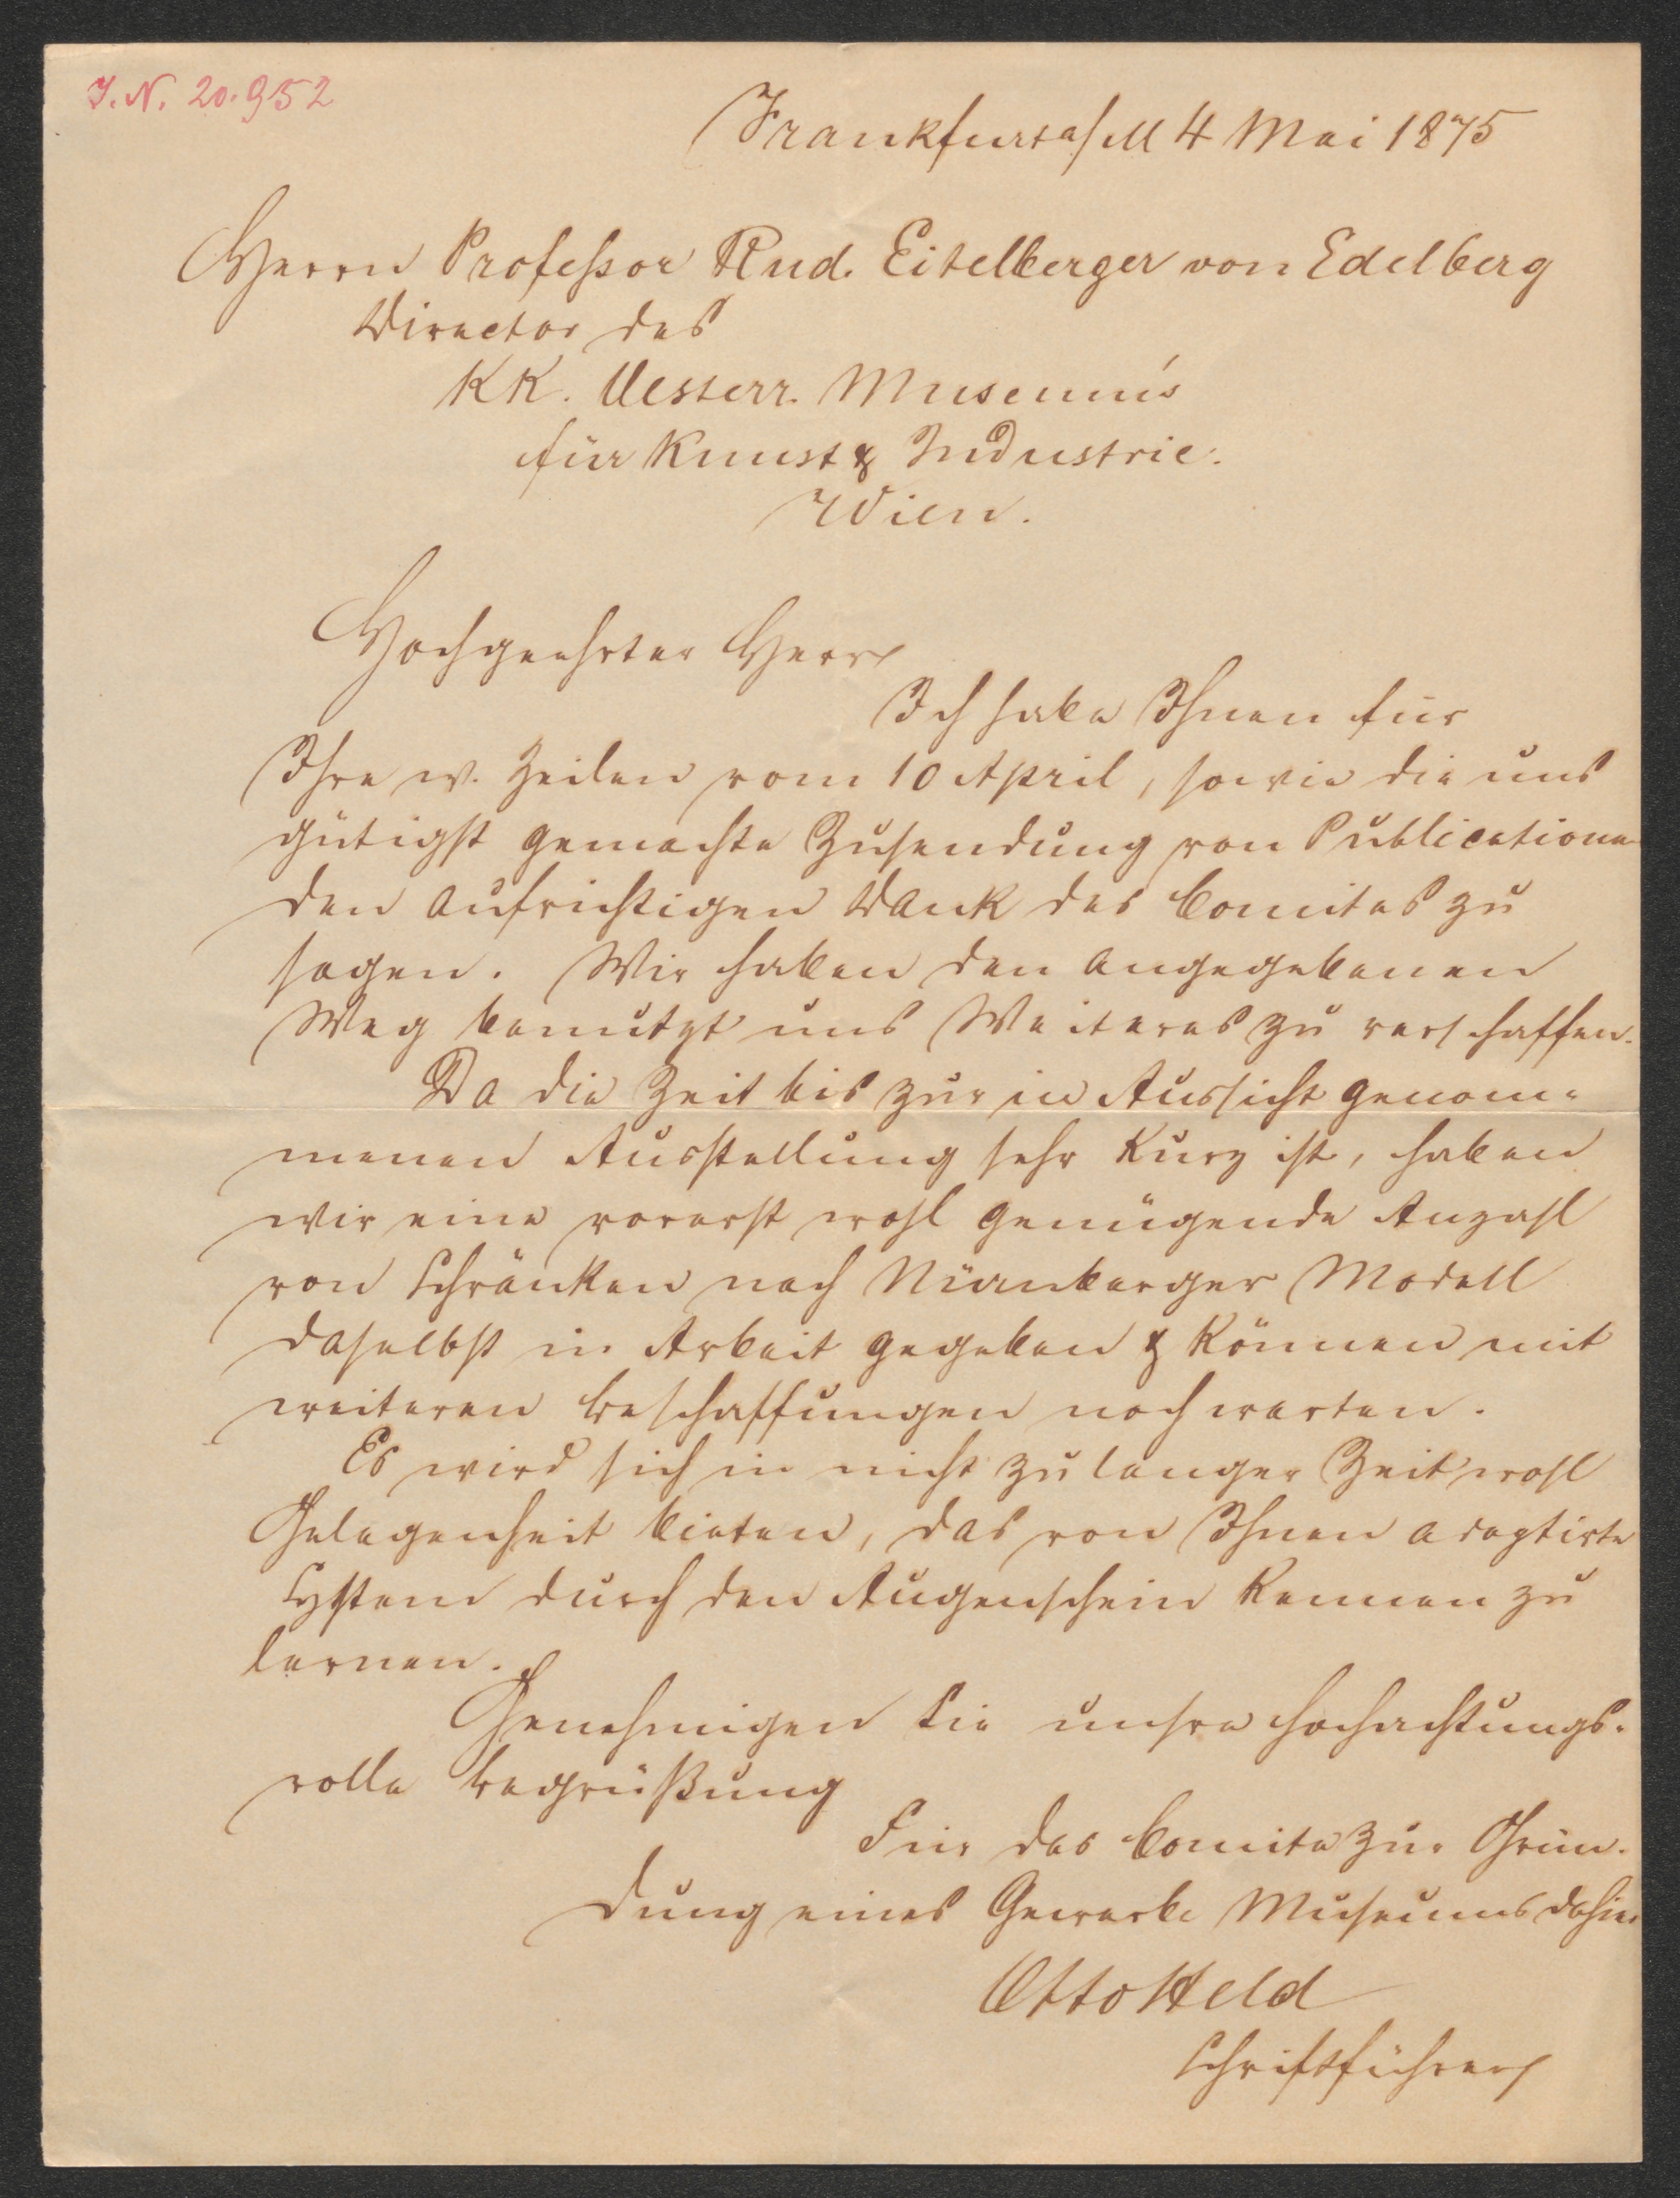 I. N. 20.952
Frankfurt a/M 4 Mai 1875
Herrn Professor Rud. Eitelberger von Edelberg
Director des
KK. Oesterr. Museum's
für Kunst & Industrie.
Wien.
Hochgeehrter Herr
Ich habe Ihnen für
Ihre w. Zeilen vom 10 April, sowie die uns
gütigst gemachte Zusendung von Publicationen
den aufrichtigen Dank des Comites zu
sagen. Wir haben den angegebenen
Weg benutzt uns Weiteres zu verschaffen.
Da die Zeit bis zur in Aussicht genom-
menen Ausstellung sehr kurz ist, haben
wir eine vorerst wohl genügende Anzahl
von Schränken nach Nürnberger Modell
daselbst in Arbeit gegeben & können mit
weiteren Beschaffungen noch warten.
Es wird sich in nicht zu langer Zeit wohl
Gelegenheit bieten, das von Ihnen adoptirte
System durch den Augenschein kennen zu
lernen.
Genehmigen Sie unsre hochachtungs-
volle Begrüßung
Für das Comite zur Grün-
dung eines Gewerbe Museums dahier
Otto Held
Schriftführer